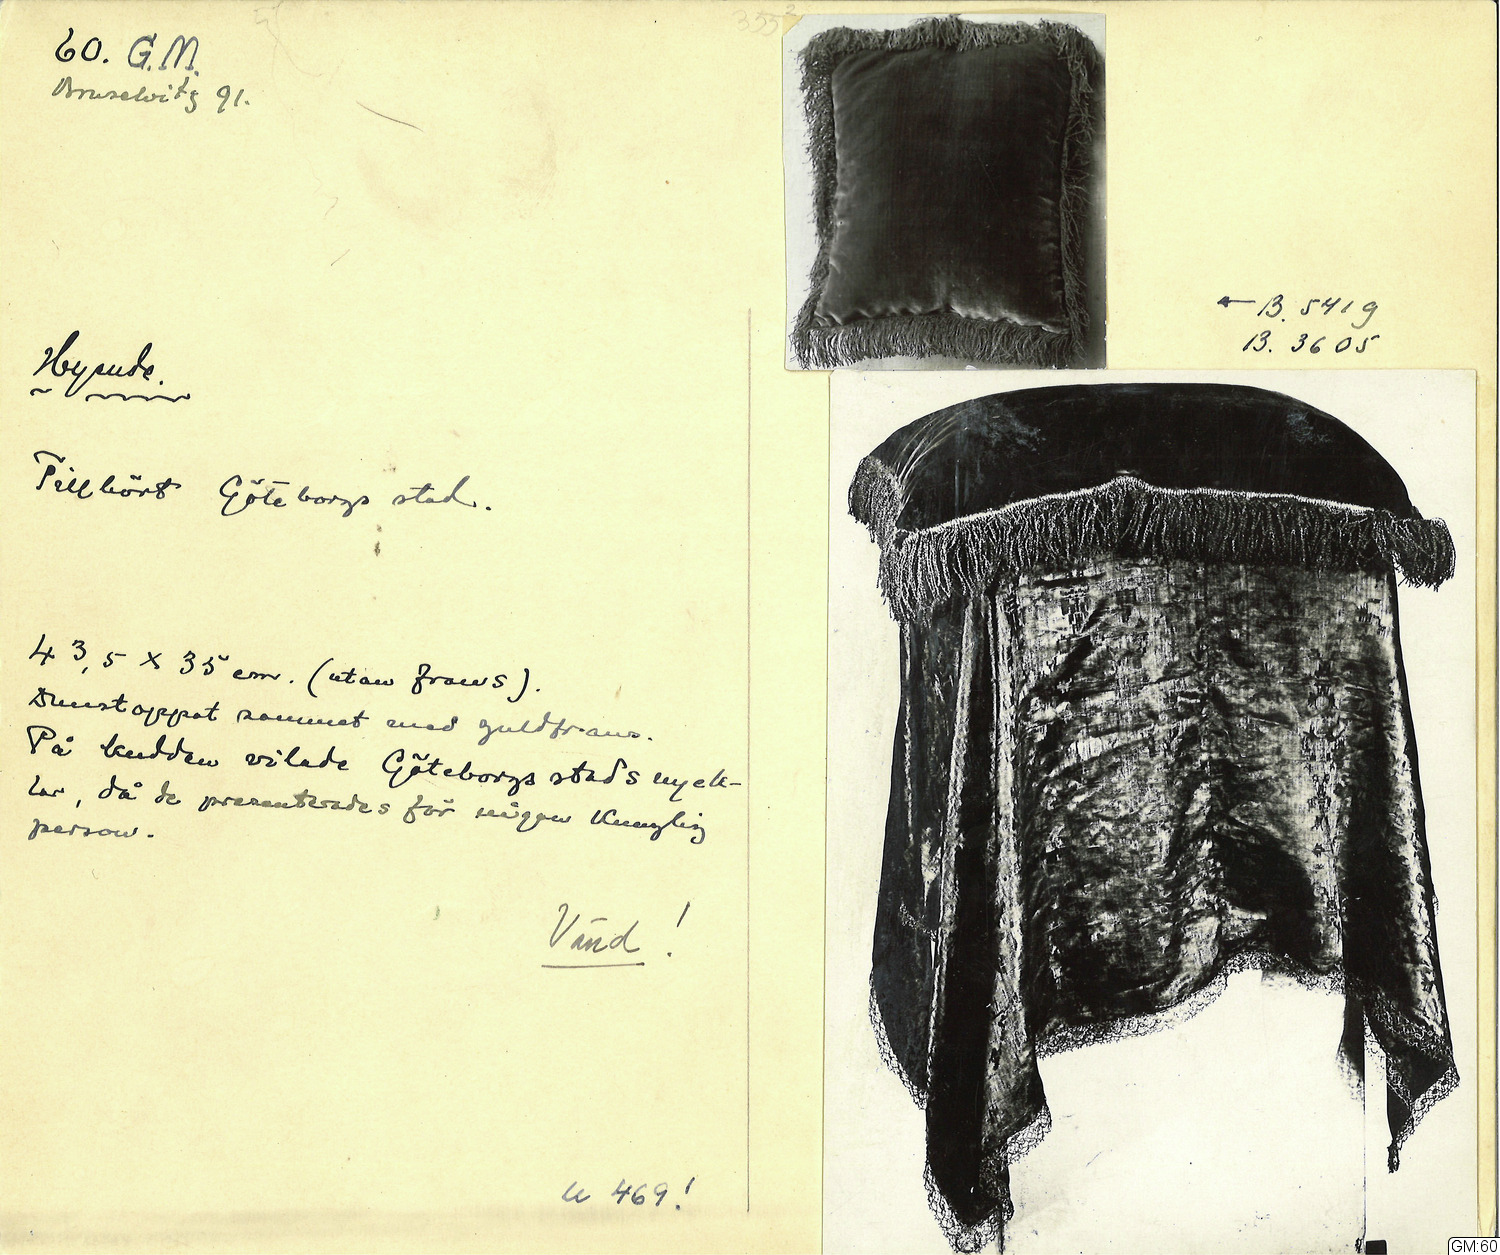 60. G.M.
Bruselvitz 91.
355²
← B. 5419
B. 3605
Hyende.
Tillhört Göteborgs stad.
43,5 x 35 cm. (utan frans).
Dunstoppat sammet med guldfrans.
På kudden vilade Göteborgs stads nyck-
lar, då de presenterades för någon Kunglig
person.
Vänd!
U 469!
GM:60